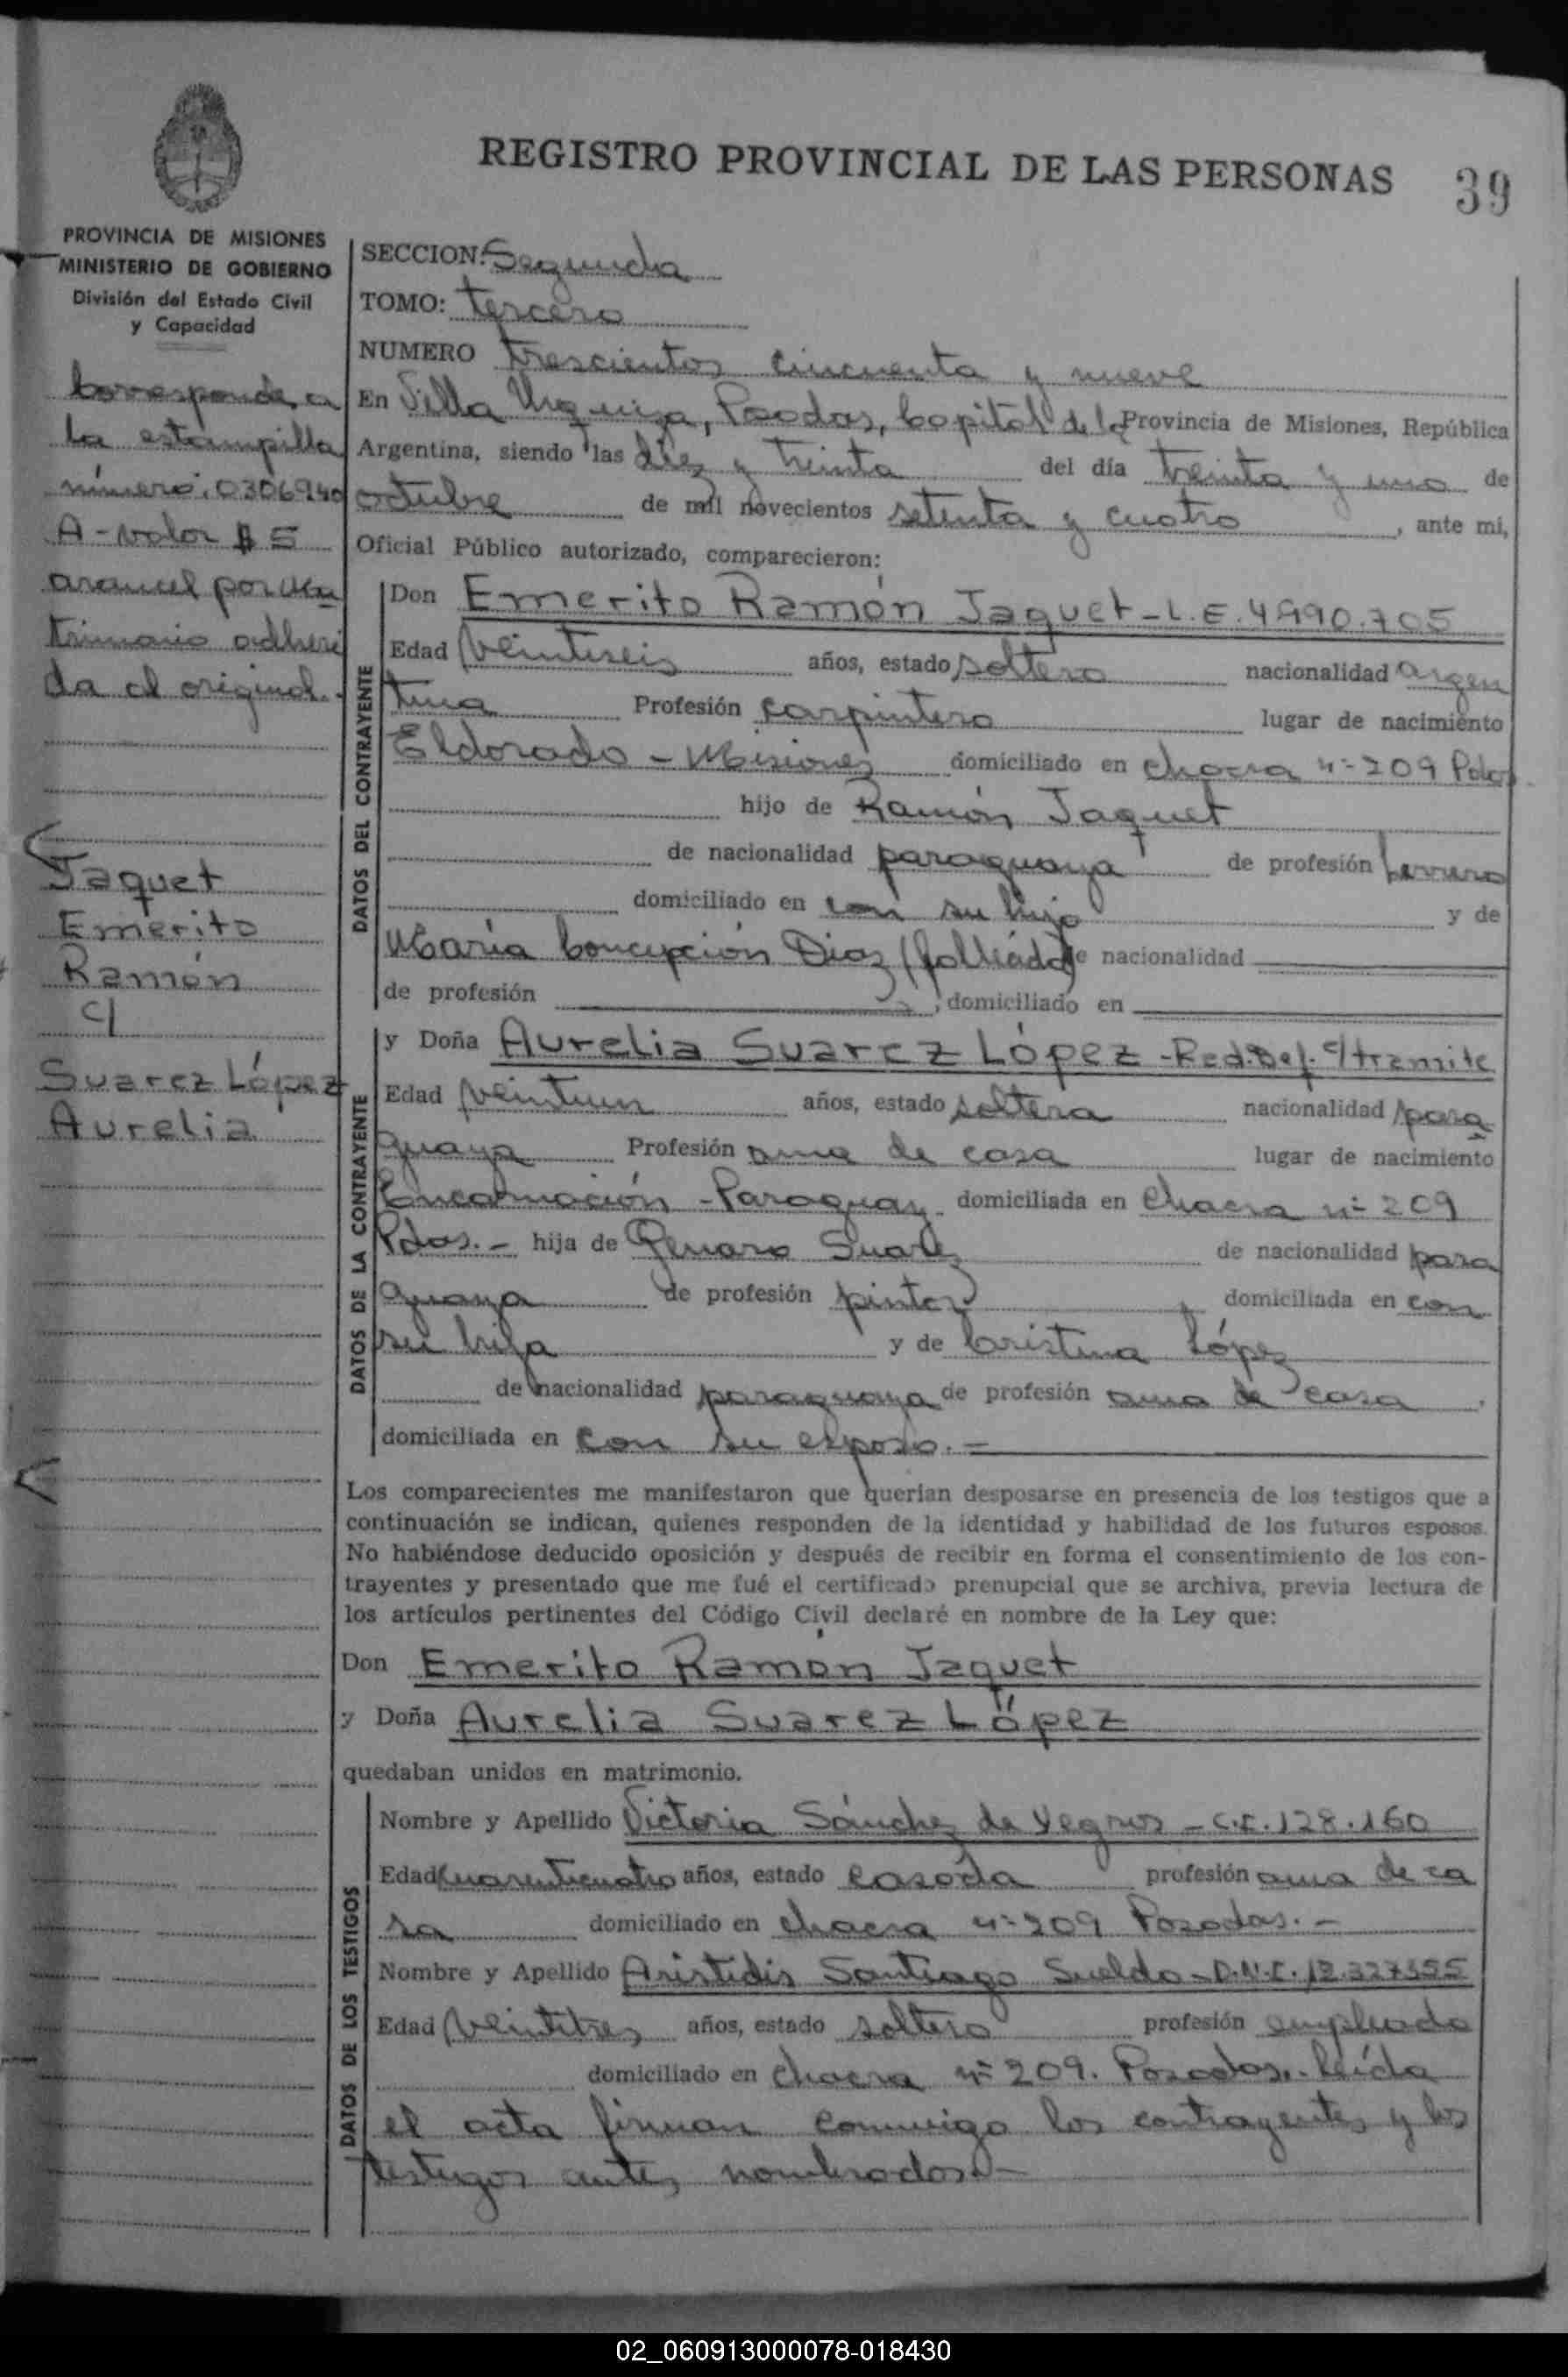 REGISTRO PROVINCIAL DE LAS PERSONAS 39
PROVINCIA DE MISIONES
MINISTERIO DE GOBIERNO
División del Estado Civil
y Capacidad
Corresponde a
la estampilla
número: 0306940
A - valor $ 5
arancel por Ma
trimonio adheri
da al original.-
Jaquet
Emerito
Ramón
c/
Suarez López
Aurelia
SECCION: Segunda
TOMO: tercero
NUMERO trescientos cincuenta y nueve
En Villa Urquiza, Posadas, Capital de la Provincia de Misiones, República
Argentina, siendo las diez y treinta del día treinta y uno de
octubre de mil novecientos setenta y cuatro, ante mí,
Oficial Público autorizado, comparecieron:
DATOS DEL CONTRAYENTE
Don Emerito Ramón Jaquet - L.E. 4.990.705
Edad veintiseis años, estado soltero nacionalidad argen
tina Profesión carpintero lugar de nacimiento
Eldorado - Misiones domiciliado en chacra nº 209 Pdas.
hijo de Ramón Jaquet
de nacionalidad paraguaya de profesión herrero
domiciliado en con su hijo y de
María Concepción Diaz (fallecida) de nacionalidad
de profesión , domiciliado en
DATOS DE LA CONTRAYENTE
y Doña Aurelia Suarez López - Red. Def. c/tramite
Edad veintiun años, estado soltera nacionalidad para
guaya Profesión ama de casa lugar de nacimiento
Encarnación - Paraguay domiciliada en chacra nº 209
Pdas.- hija de Genaro Suarez de nacionalidad para
guaya de profesión pintor, domiciliada en con
su hija y de Cristina López
de nacionalidad paraguaya de profesión ama de casa.
domiciliada en con su esposo.-
Los comparecientes me manifestaron que querían desposarse en presencia de los testigos que a
continuación se indican, quienes responden de la identidad y habilidad de los futuros esposos.
No habiéndose deducido oposición y después de recibir en forma el consentimiento de los con-
trayentes y presentado que me fué el certificado prenupcial que se archiva, previa lectura de
los artículos pertinentes del Código Civil declaré en nombre de la Ley que:
Don Emerito Ramón Jaquet
y Doña Aurelia Suarez López
quedaban unidos en matrimonio.
DATOS DE LOS TESTIGOS
Nombre y Apellido Victoria Sánchez de Yegros - C.I. 128.160
Edad cuarenticuatro años, estado casada profesión ama de ca
sa domiciliado en chacra nº 209 Posadas.-
Nombre y Apellido Aristidis Santiago Sueldo - D.N.I. 12.327.555
Edad veintitres años, estado soltero profesión empleado
domiciliado en chacra nº 209. Posadas.- Leída
el acta firman conmigo los contrayentes y los
testigos antes nombrados.-
02_060913000078-018430